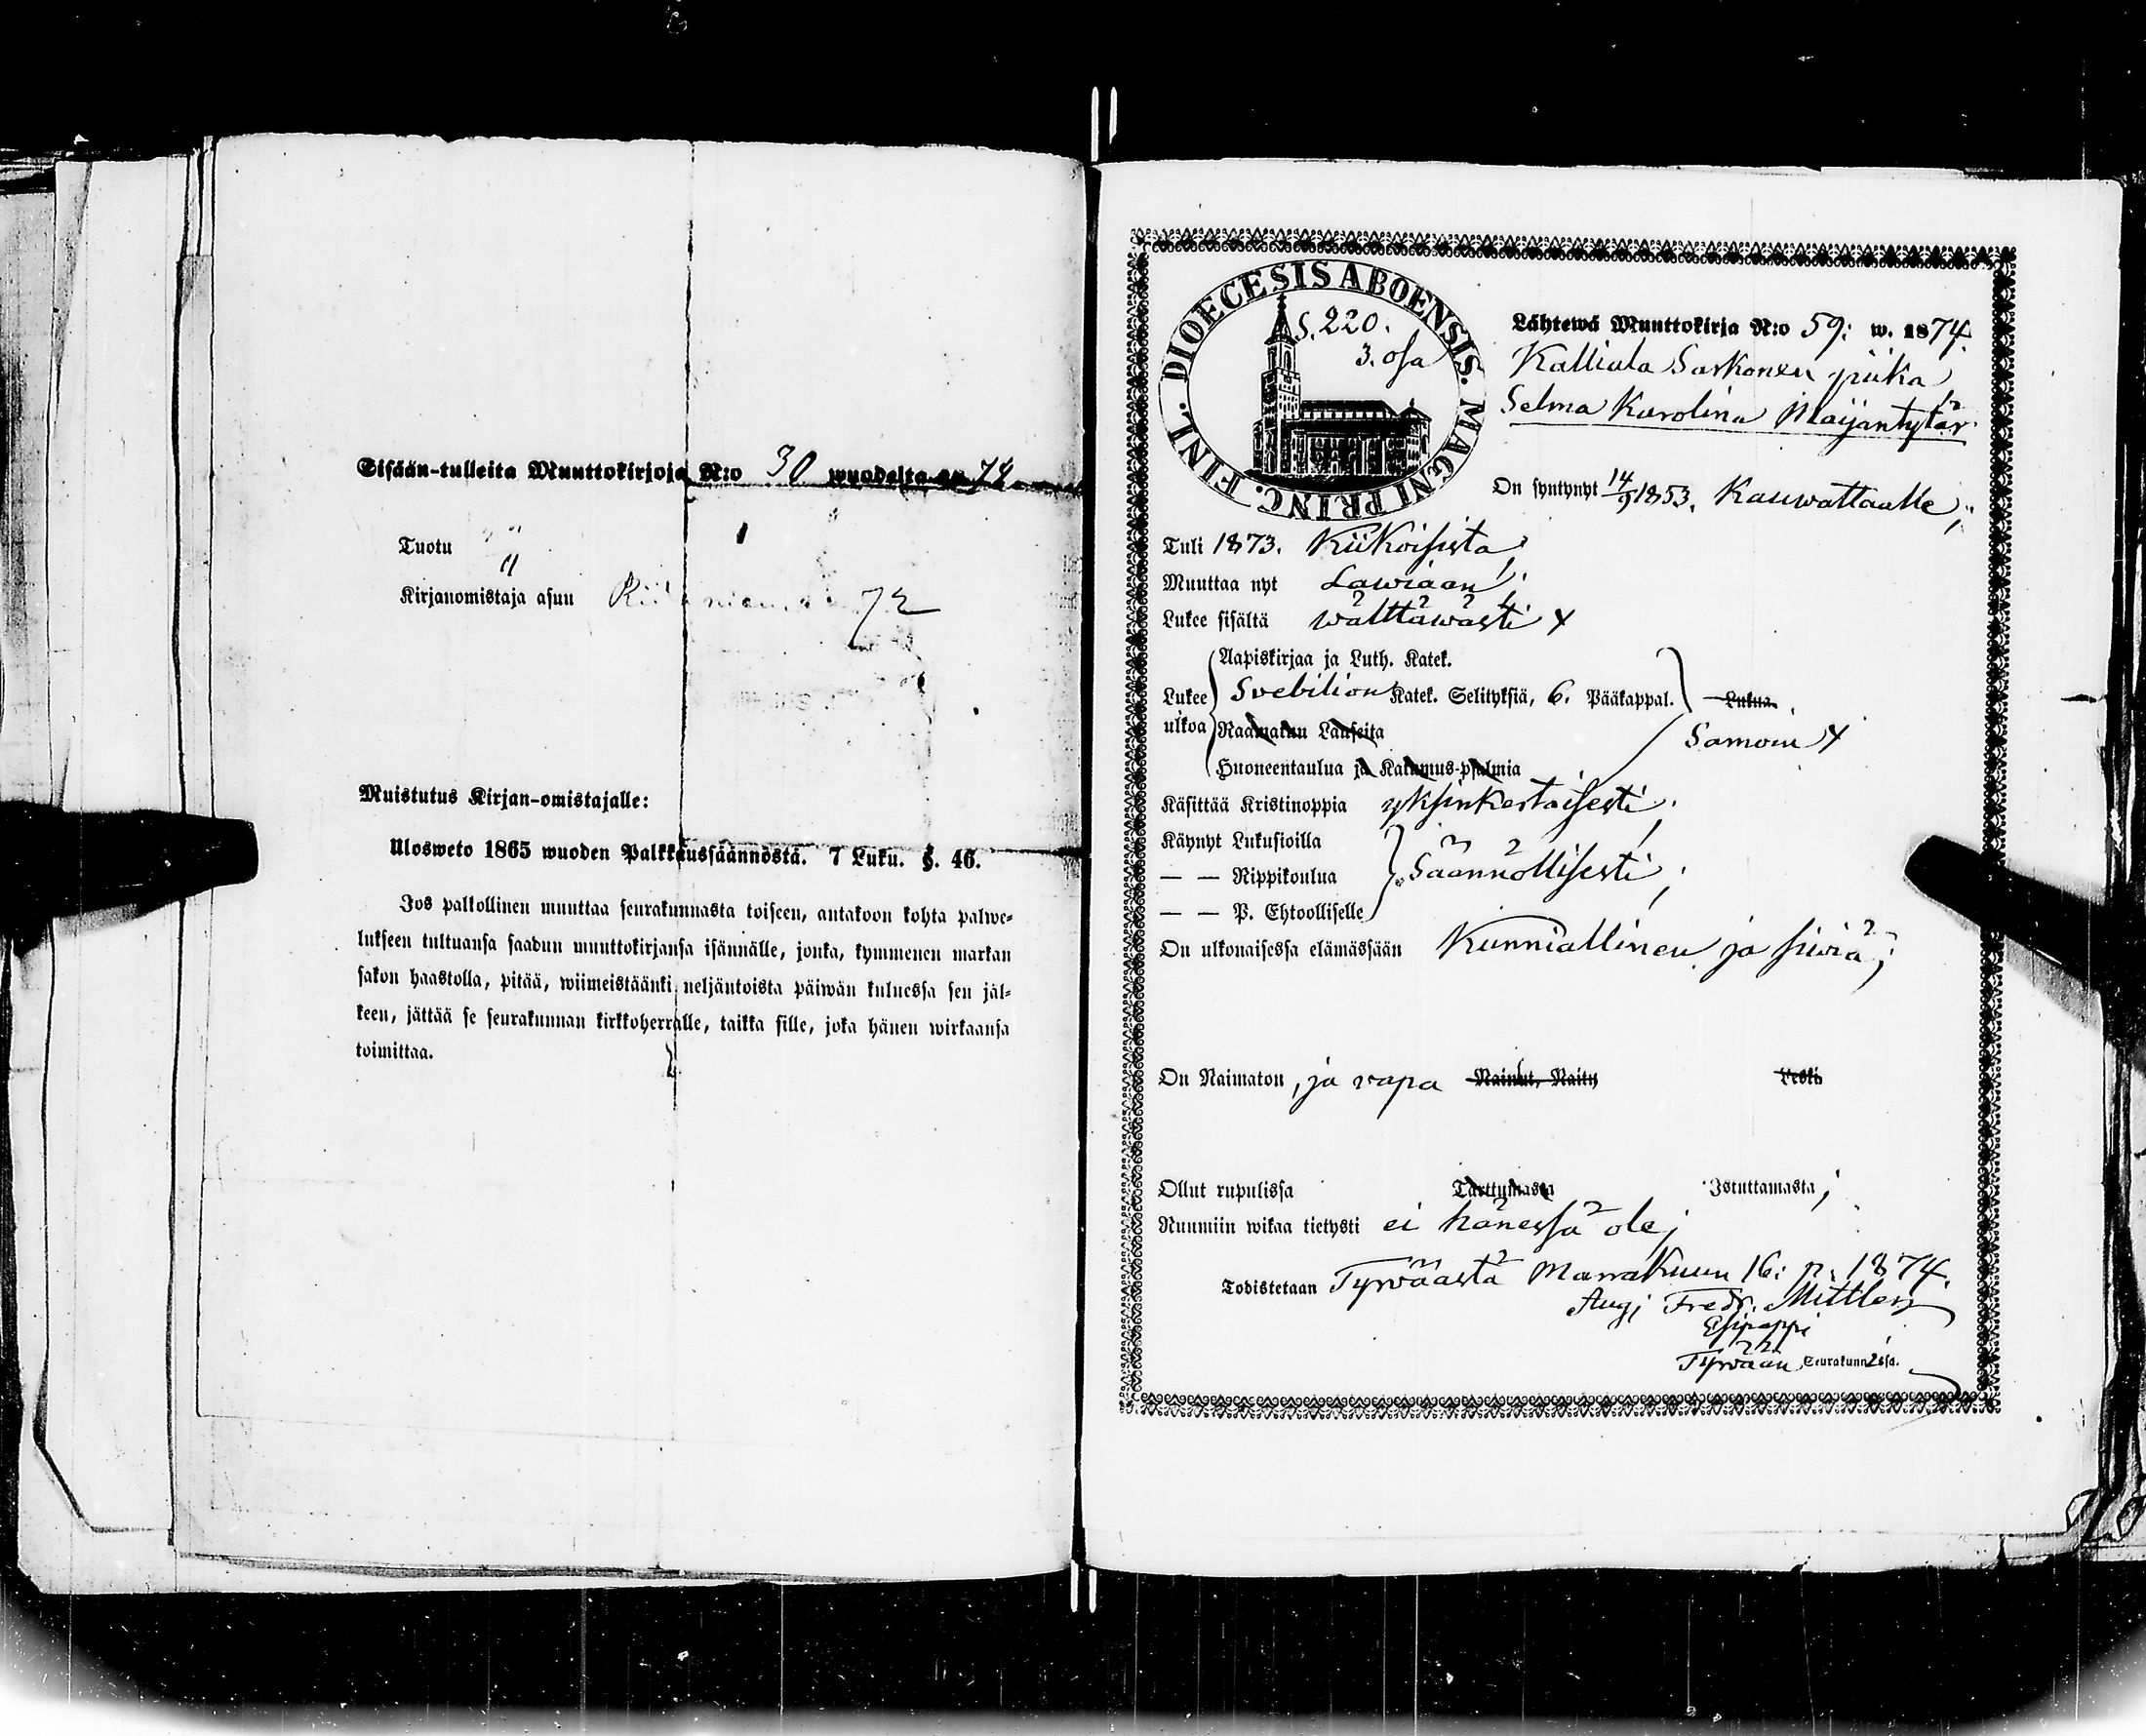 Sisään-tulleita Muuttokirjoja N:o 30 wuodelta 1874
Tuotu
Kirjanomistaja asuu 72
Muistutus Kirjan-omistajalle:
Ulosweto 1865 wuoden Palkkaussäännöstä. 7 Luku. §. 46.
Jos palkollinen muuttaa seurakunnasta toiseen, antakoon kohta palwe-
lukseen tultuansa saadun muuttokirjansa isännälle, jonka, kymmenen markan
sakon haastolla, pitää, wiimeistäänki neljäntoista päiwän kuluessa sen jäl-
keen, jättää se seurakunnan kirkkoherralle, taikka sille, joka hänen wirkaansa
toimittaa.
DIOECESIS ABOENSIS. MAGNI PRINC. FINL.
S. 220.
3. osa
Lähtewä Muuttokirja N:o 59: w. 1874.
Kalliala Sarkonen piika
Selma Karolina Maijantytär
On syntynyt 14/9 1853. Kauwattaalle;
Tuli 1873. Kiikoisista;
Muuttaa nyt Lawiaan;
Lukee sisältä wälttäwästi x
Aapiskirjaa ja Luth. Katek.
Lukee ulkoa Svebilion Katek. Selityksiä, 6. Pääkappal. Lukua.
Raamatun Lauseita Samoin x
Huoneentaulua ja Katumus-psalmia
Käsittää Kristinoppia yksinkertaisesti;
Käynyt Lukusioilla
— — Rippikoulua Säännöllisesti;
— — P. Ehtoolliselle
On ulkonaisessa elämässään Kunniallinen ja siwiä;
On Naimaton, ja vapa Nainut, Naitu Leski
Ollut rupulissa Tarttumasta Istuttamasta;
Ruumiin wikaa tietysti ei hänessä ole;
Todistetaan Tyrwäästä Marraskuun 16: p. 1874.
Aug; Fredr. Mittler
Esipappi
Tyrwään Seurakunnassa.